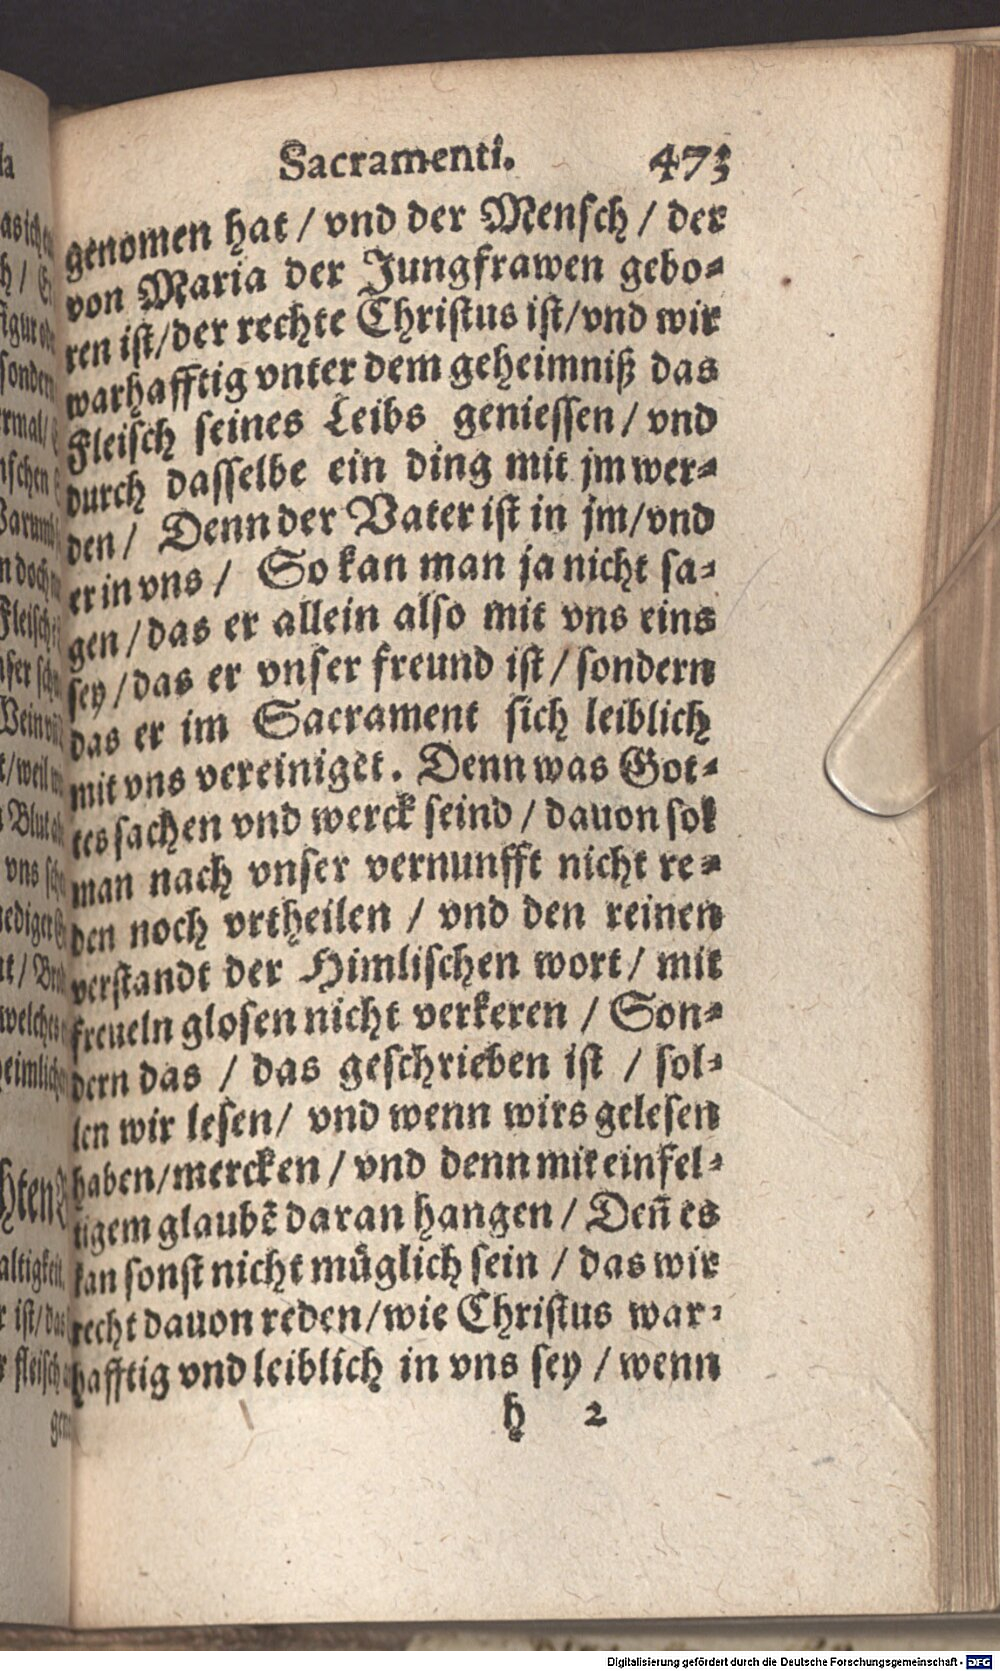 Sacramenti. 473
genomen hat / vnd der Mensch / der
von Maria der Jungfrawen gebo⸗
ren ist/der rechte Christus ist/vnd wir
warhafftig vnter dem geheimniß das
Fleisch seines Leibs geniessen / vnd
durch dasselbe ein ding mit jm wer⸗
den / Denn der Vater ist in jm/vnd
er in vns / So kan man ja nicht sa⸗
gen / das er allein also mit vns eins
sey / das er vnser freund ist / sondern
das er im Sacrament sich leiblich
mit vns vereiniget. Denn was Got⸗
tes sachen vnd werck seind / dauon sol
man nach vnser vernunfft nicht re⸗
den noch vrtheilen / vnd den reinen
verstandt der Himlischen wort / mit
freueln glosen nicht verkeren / Son⸗
dern das / das geschrieben ist / sol⸗
len wir lesen / vnd wenn wirs gelesen
haben/mercken / vnd denn mit einfel⸗
tigem glaubẽ daran hangen / Deñ es
kan sonst nicht müglich sein / das wir
recht dauon reden/wie Christus war⸗
hafftig vnd leiblich in vns sey / wenn
h 2
Digitalisierung gefördert durch die Deutsche Forschungsgemeinschaft - DFG